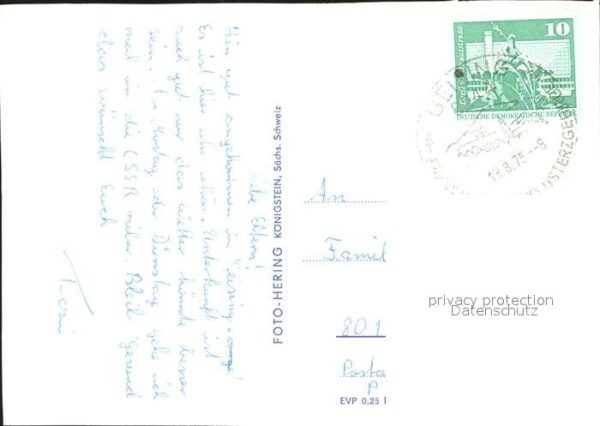 Liebe Eltern!
Bin gut angekommen in Geising.
Es ist hier sehr schön. Unterkunft ist
auch gut nur das Wetter könnte besser
sein. Montag oder Dienstag gehe ich
mal in die CSSR rüber. Bleib gesund
das wünscht Euch
FOTO-HERING KÖNIGSTEIN, Sächs. Schweiz
10
DEUTSCHE DEMOKRATISCHE REPUBLIK
GEISING
OSTERZGEBIRGE
8.75.-8
An
Famil
801
Posta
P
EVP 0,25
privacy protection
Datenschutz